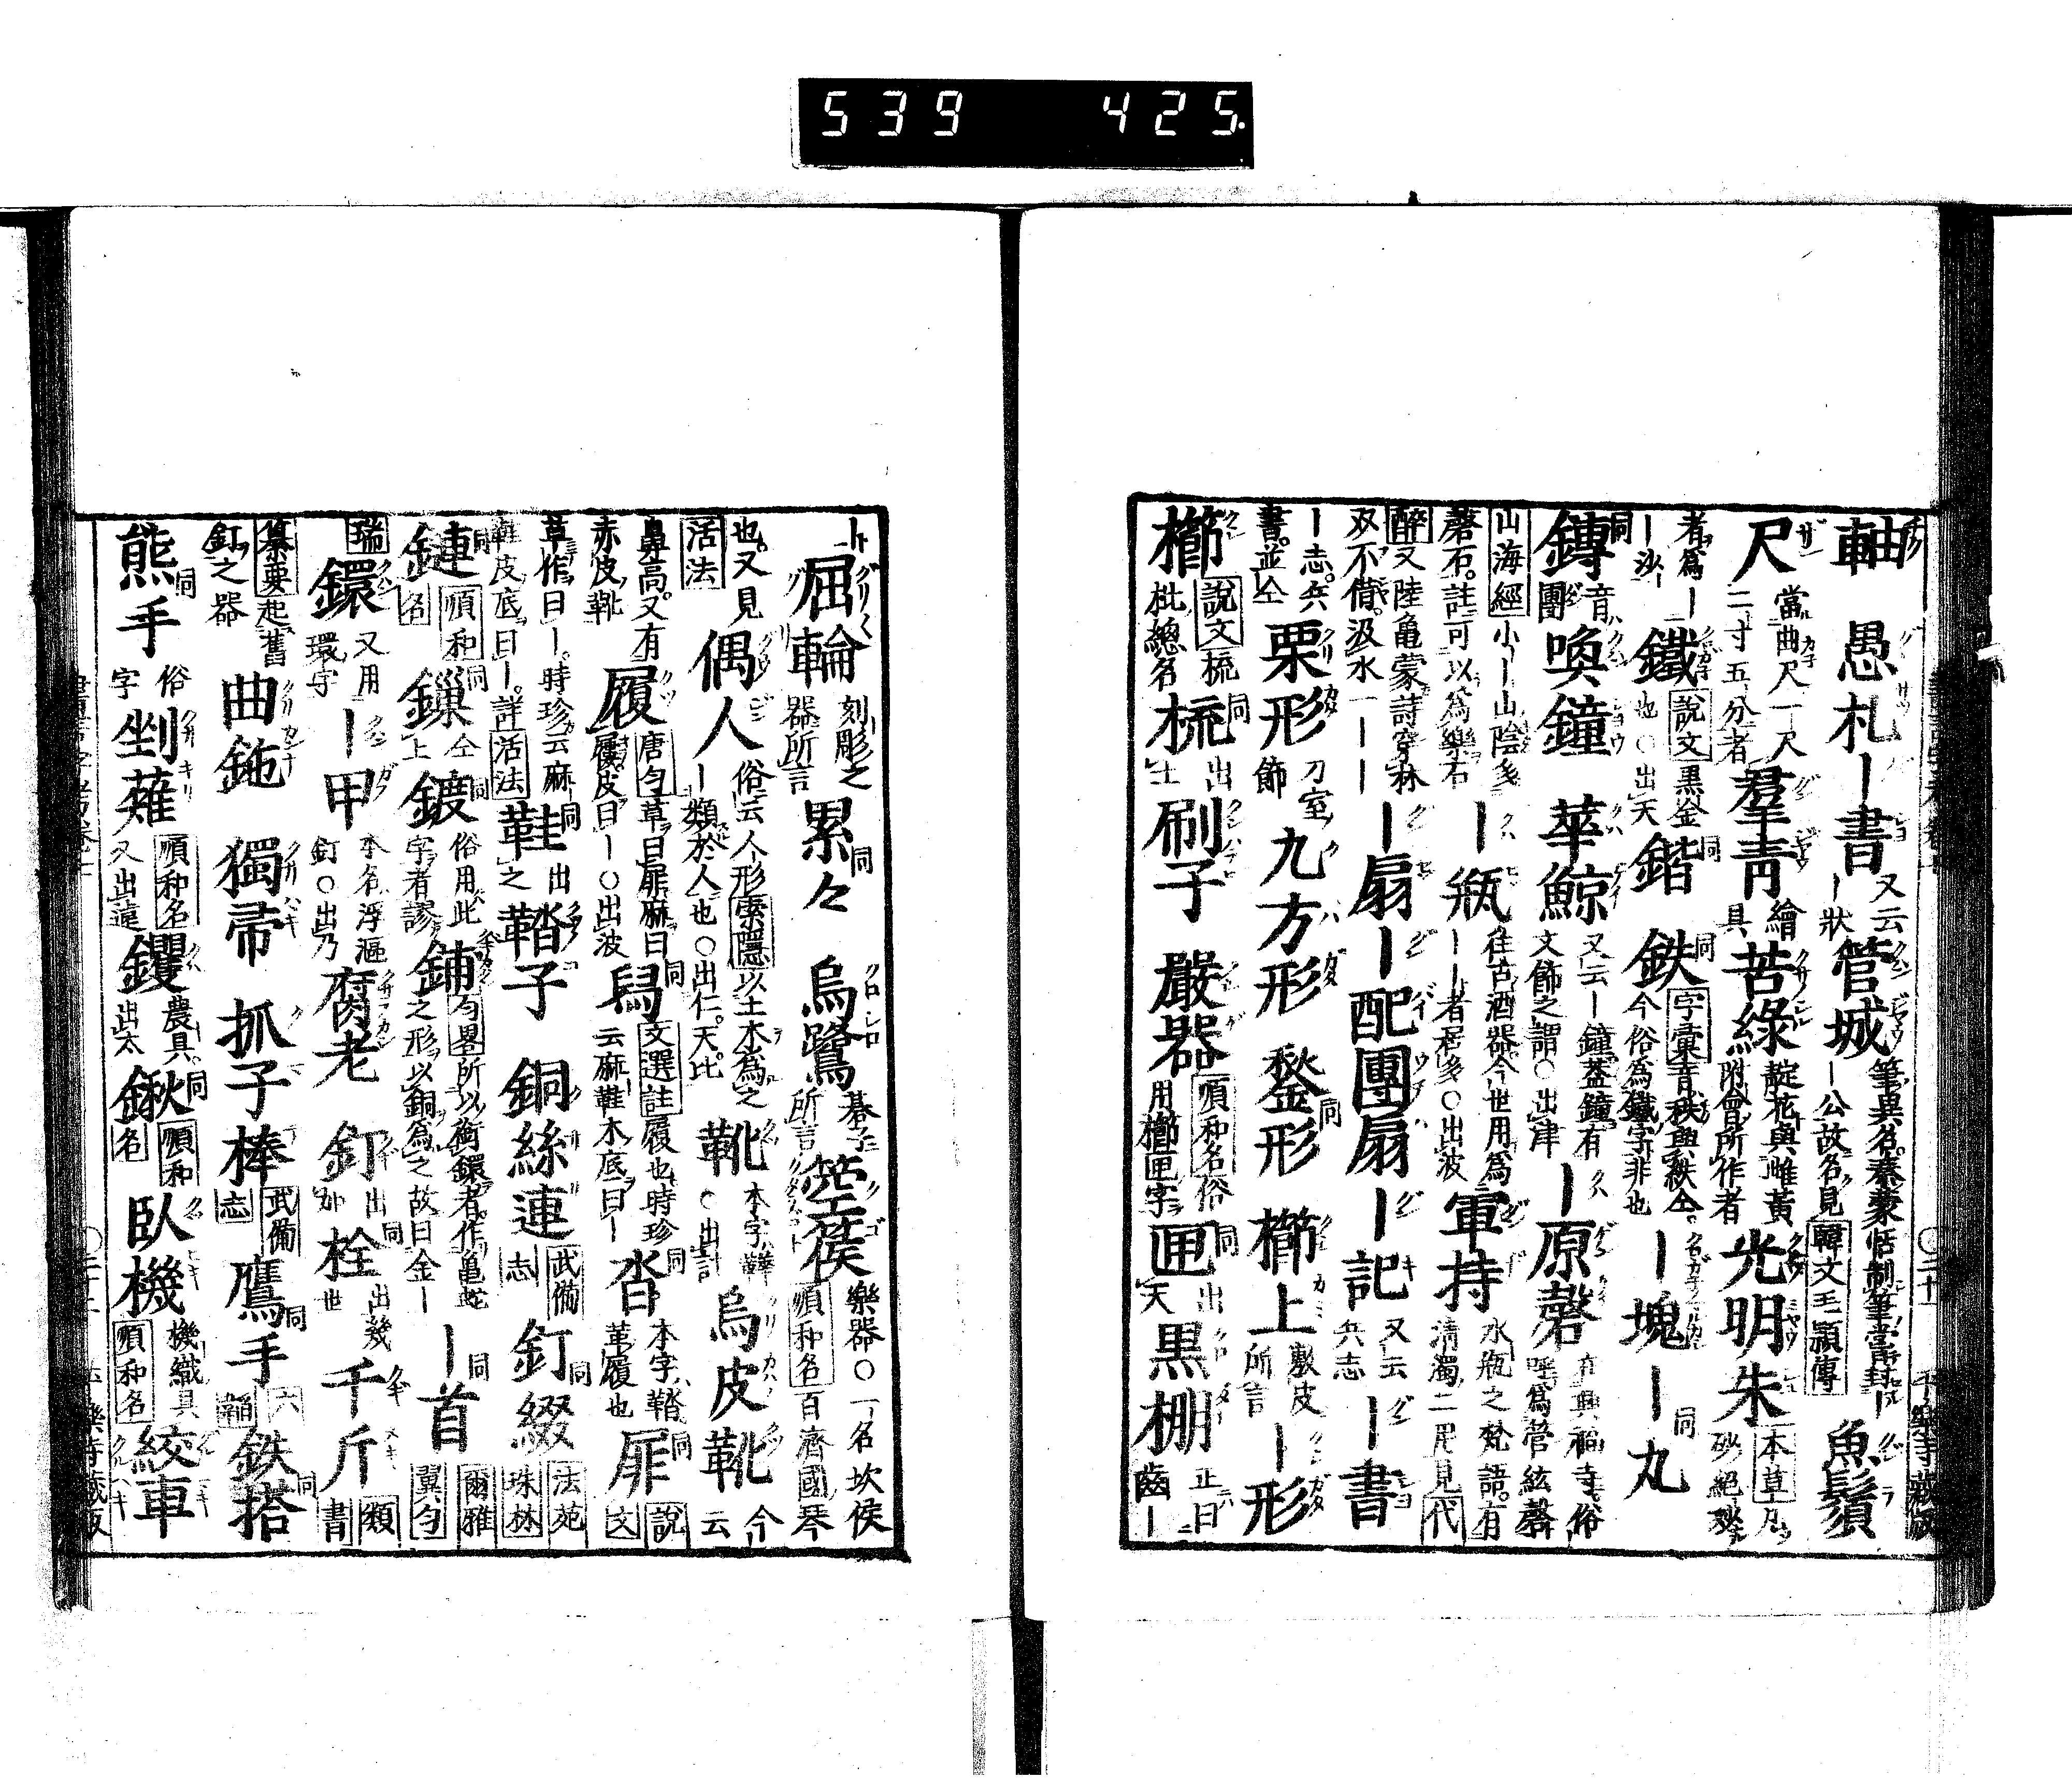 539 425
軸 愚札 ｜書 又云｜狀 管城 筆異名秦蒙恬制筆當封｜｜公故名見韓文毛頴傳 魚鬚
尺 當曲尺一尺二寸五分者 羣青 繪具 苦綠 靛花與雌黃附會所作者 光明朱 本草
者爲｜｜沙 鐵 說文黒金也○出天 鍇 同 鉄 同 字彙音秩與紩仝今俗爲鐵字非也 ｜塊 ｜丸 同
鏄 同 音團 喚鐘 華鯨 又云｜鐘蓋鐘有文飾之謂○出津 ｜原磬 在興福寺俗呼爲管絃磬
山海經小｜山陰多磬石註可以爲樂石 ｜瓶 往古酒器今世用爲｜｜者居多○出波 軍持 水瓶之梵語有清濁二用見代
醉 又陸亀蒙詩穿林双不借汲水｜｜｜ ｜扇 ｜配團扇 ｜記 又云兵志 ｜書
｜志兵書並仝 栗形 刀室飾 九方形 鍪形 同 櫛上 敷皮所言 ｜形
櫛 說文梳枇總名 梳 同 出土 刷子 嚴器 順和名俗用櫛匣字 匣 同 出天 黒棚 正曰齒｜
屈輪 刻彫之器所言 累々 同 烏鷺 碁所言 箜篌 樂器○一名坎侯順和名百濟國琴
也又見活法 偶人 俗云人形索隱以土木爲之｜類於人也○出仁天比 靴 本字鞾○出計 烏皮靴 今云
鼻高又有赤皮靴 履 唐匀草曰扉麻曰屨皮曰｜○出波 舄 同 文選註履也時珍云麻鞋木底曰｜ 沓 同 本字鞜革履也 屝 同 說文
草作曰｜時珍云麻鞋皮底曰｜詳活法 鞋 同 出之 鞜子 銅絲連 武備志 釘綴 同 法苑珠林
鏈 同 順和名 鏁 同 仝上 鍍 同 俗用此字者謬 鋪 匀畧所以銜鐶者作亀蛇之形以銅爲之故曰金｜ ｜首 同 爾雅翼匀
瑞 鐶 又用環字 ｜甲 本名浮漚釘○出乃 腐老 釘 出如 栓 同 出幾世 千斤 類書
纂要起舊釘之器 曲鉇 獨帚 抓子棒 武備志 鷹手 同 六韜 鉄搭 同
熊手 同 俗字 剉薙 順和名又出遠 钁 農具出太 鍬 同 順和名 臥機 機織具順和名 絞車